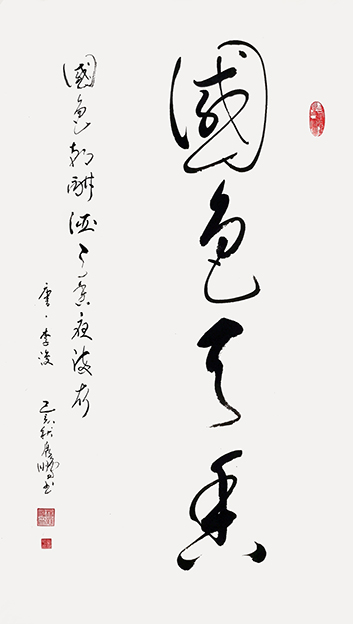 國色天香
國色朝酣酒天香夜染衣
唐·李浚
己亥秋 书